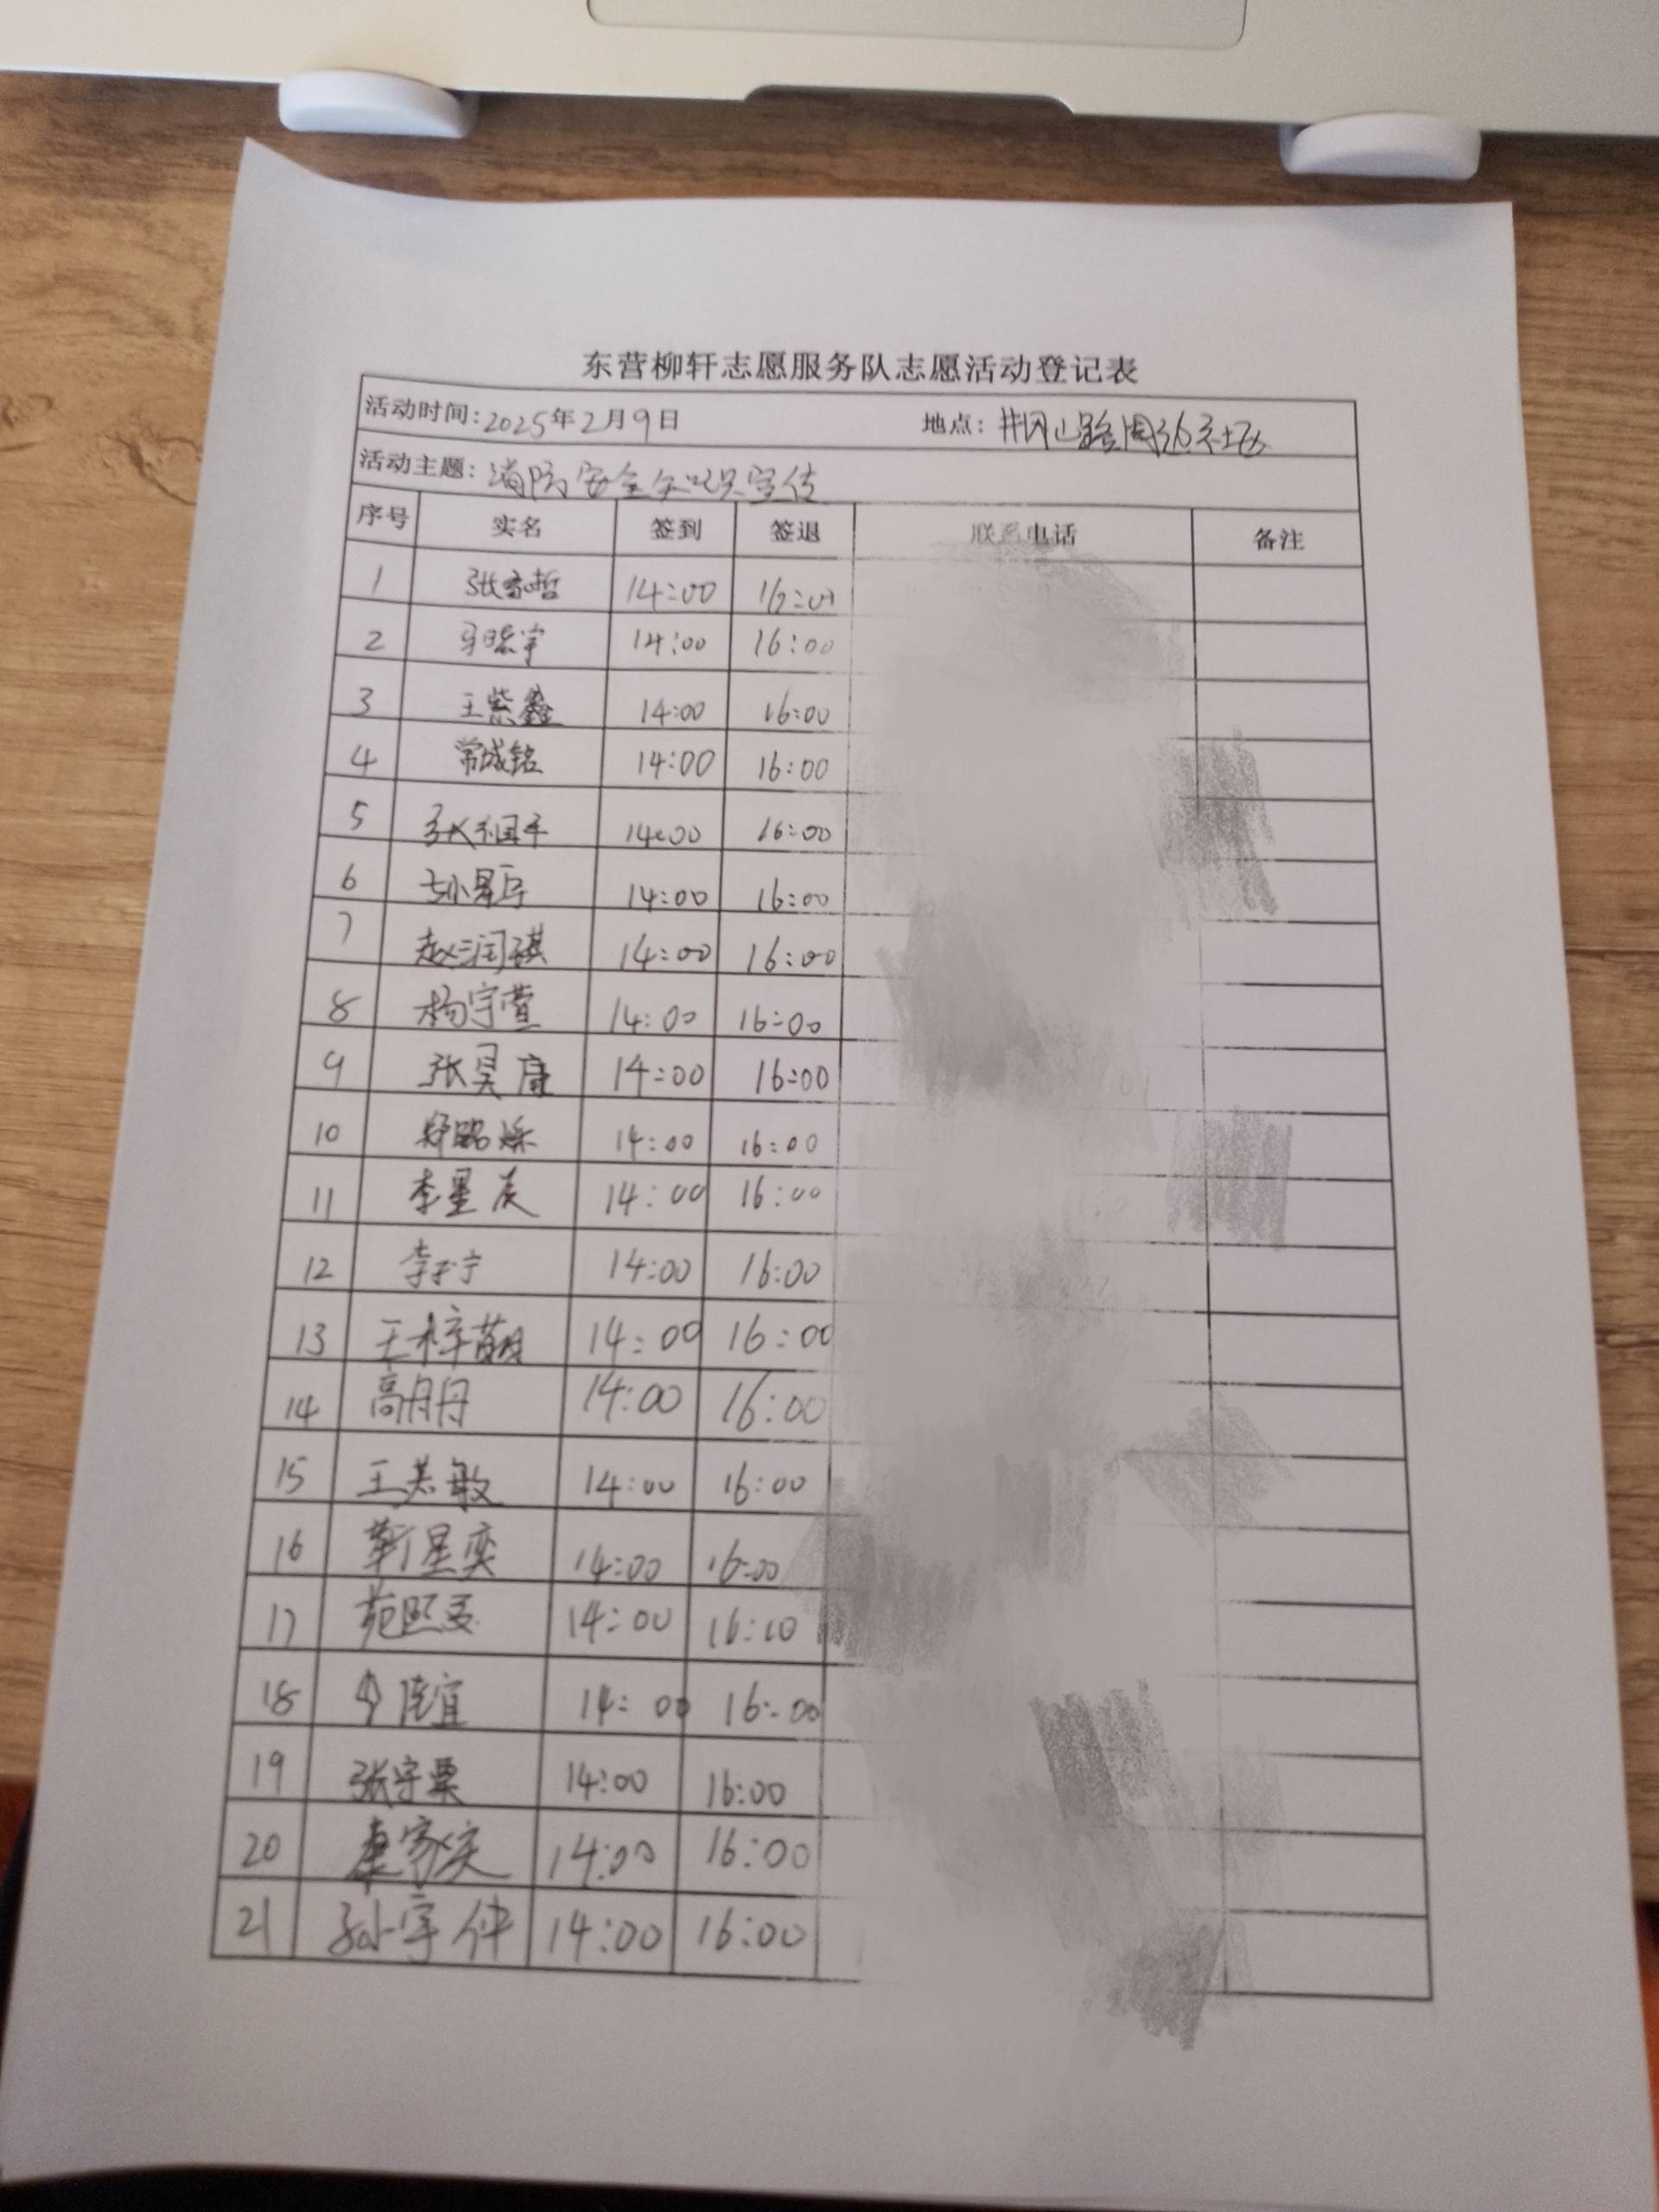 东营柳轩志愿服务队志愿活动登记表
活动时间：2025年2月9日 地点：井冈山路周边社区
活动主题：消防安全知识宣传
序号 实名 签到 签退 联系电话 备注
1 张家哲 14:00
2 14:00 16:00
3 王紫鑫 14:00 16:00
4 常城铭 14:00 16:00
5 14:00 16:00
6 14:00 16:00
7 赵润祺 14:00 16:00
8 杨宇萱 14:00 16:00
9 张昊康 14:00 16:00
10 14:00 16:00
11 李星辰 14:00 16:00
12 14:00 16:00
13 王梓萌 14:00 16:00
14 高丹丹 14:00 16:00
15 王美敏 14:00 16:00
16 靳星奕 14:00 16:00
17 14:00 16:00
18 14:00 16:00
19 张宇栗 14:00 16:00
20 14:00 16:00
21 孙宇仲 14:00 16:00